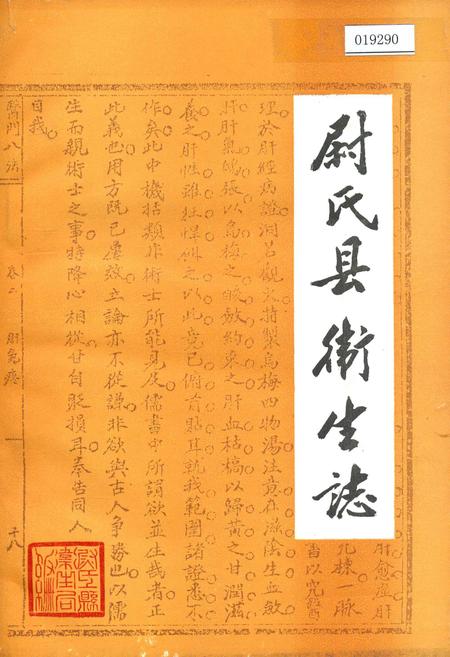 019290
尉氏县衛生誌
肝愈虛肝
化棟一脉
理於肝經病證洞若觀火特製烏梅四物湯注意在滋陰生血斂
肝肝氣鴟張以烏梅之酸斂約束之肝血枯槁以歸黃之甘潤滋
養之肝性雖狂悍御之以此竟已俯首貼耳就我範圍諸證悉不
作矣此中機括類非術士所能見及儒書中所謂欲並生哉者正
此義也用方既已屢效立論亦不從謙非欲與古人爭勝也以儒
生而親術士之事特降心相從甘自貶損耳奉告同人
自我
醫門八法
卷二
肝氣疼
十八
尉氏縣
衛生局